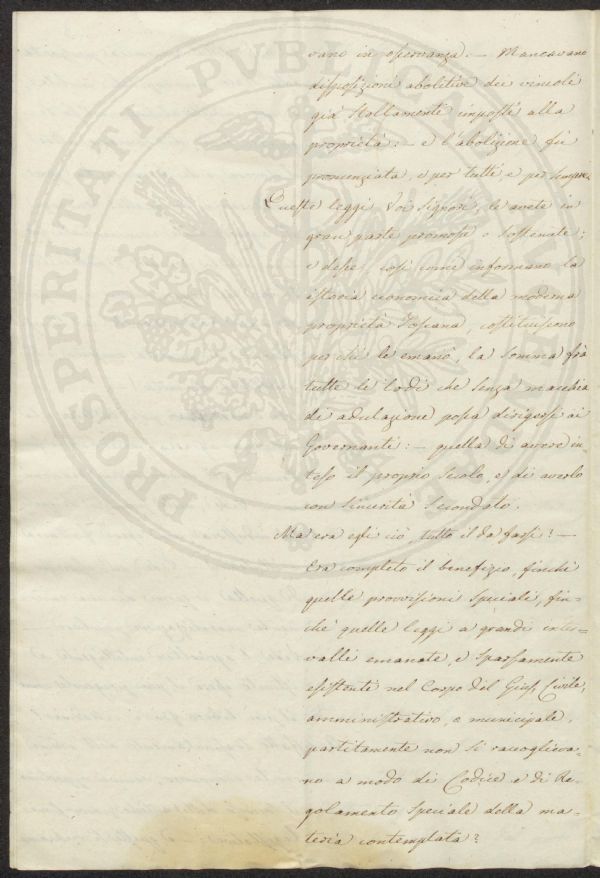 vano in osservanza. — Mancavano
disposizioni abolitive dei vincoli
già stoltamente imposti alla
proprietà: — e l'abolizione fu
pronunziata, e per tutti, e per sempre.
Queste leggi, Voi Signori, le avete in
gran parte promosse o sostenute;
e desse, così come informano la
istoria economica della moderna
proprietà Toscana, costituiscono
per chi le emanò, la somma frà
tutte le lodi che senza macchia
di adulazione possa dirigersi ai
Governanti: — quella di avere in-
teso il proprio secolo, e di averlo
con sincerità secondato.
Ma era egli ciò, tutto il da farsi? —
Era completo il benefizio, finchè
quelle provvisioni speciali, fin-
chè quelle leggi a grandi inter-
valli emanate, e sparsamente
esistenti nel Corpo del Gius Civile,
amministrativo, e municipale,
partitamente non si raccoglieva-
no a modo di Codice e di Re-
golamento speciale della ma-
teria contemplata?
PROSPERITATI PUBLICAE